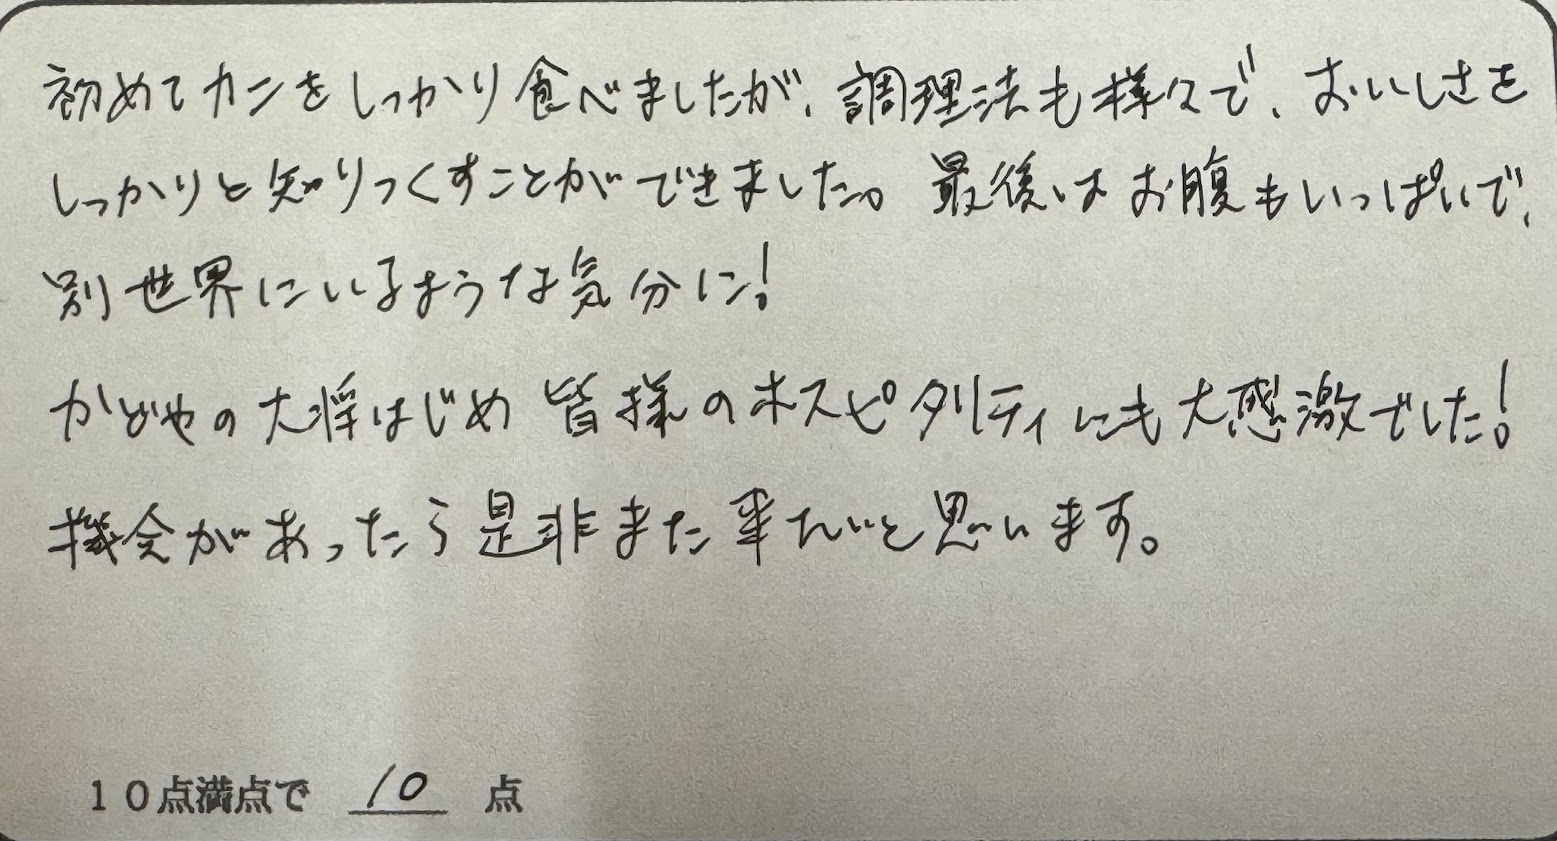 初めてカニをしっかり食べましたが、調理法も様々で、おいしさを
しっかりと知りつくすことができました。最後はお腹もいっぱいで、
別世界にいるような気分に!
かどやの大将はじめ皆様のホスピタリティにも大感激でした!
機会があったら是非また来たいと思います。
10点満点で 10 点